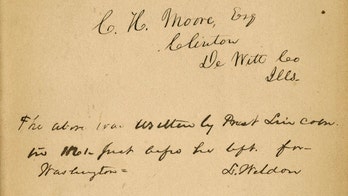 C. H. Moore, Esq
Clinton
De Witt Co
Ills.
The above was written by Prest Lincoln
in 1861 just before he left for
Washington=
L. Weldon